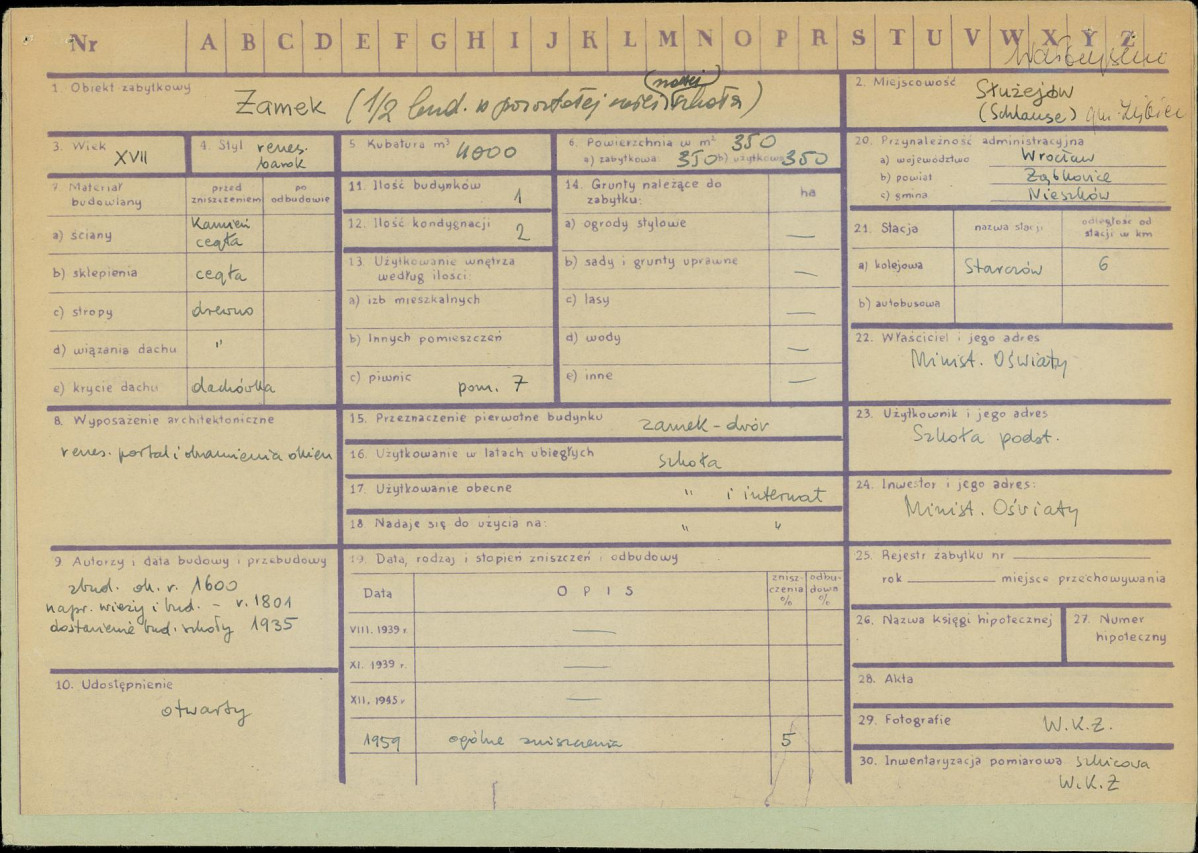 Nr A B C D E F G H I J K L M N O P R S T U V W X Y Z
1. Obiekt zabytkowy
Zamek (1/2 bud. w pozostałej części szkoła)
(nowej)
2. Miejscowość Służejów
(Schlause) gm.
3. Wiek XVII
4. Styl renes. barok
5 Kubatura m³ 4000
6. Powierzchnia w m² 350
a) zabytkowa 350 b) użytkowa 350
7. Materiał budowlany
przed zniszczeniem
po odbudowie
a) ściany Kamień cegła
b) sklepienia cegła
c) stropy drewno
d) wiązania dachu "
e) krycie dachu dachówka
8. Wyposażenie architektoniczne
renes. portal i obramienia okien
9. Autorzy i data budowy i przebudowy
zbud. ok. r. 1600
napr. wieży i bud. – r. 1801
dostawienie bud. szkoły 1935
10. Udostępnienie
otwarty
11. Ilość budynków 1
12. Ilość kondygnacji 2
13. Użytkowanie wnętrza według ilości:
a) izb mieszkalnych
b) Innych pomieszczeń
c) piwnic pom. 7
14. Grunty należące do zabytku: ha
a) ogrody stylowe —
b) sady i grunty uprawne —
c) lasy —
d) wody —
e) inne —
15. Przeznaczenie pierwotne budynku zamek – dwór
16. Użytkowanie w latach ubiegłych szkoła
17. Użytkowanie obecne " i internat
18. Nadaje się do użycia na: " "
19. Data, rodzaj i stopień zniszczeń i odbudowy
Data O P I S znisz-czenia % odbu-down %
VIII. 1939 r. —
XI. 1939 r. —
XII. 1945 r —
1959 ogólne zniszczenia 5
20. Przynależność administracyjna
a) województwo Wrocław
b) powiat Ząbkowice
c) gmina Nieszków
21. Stacja nazwa stacji odległość od stacji w km
a) kolejowa Starczów 6
b) autobusowa
22. Właściciel i jego adres
Minist. Oświaty
23. Użytkownik i jego adres
Szkoła podst.
24. Inwestor i jego adres:
Minist. Oświaty
25. Rejestr zabytku nr
rok miejsce przechowywania
26. Nazwa księgi hipotecznej
27. Numer hipoteczny
28. Akta
29. Fotografie W.K.Z.
30. Inwentaryzacja pomiarowa szkicowa
W.K.Z